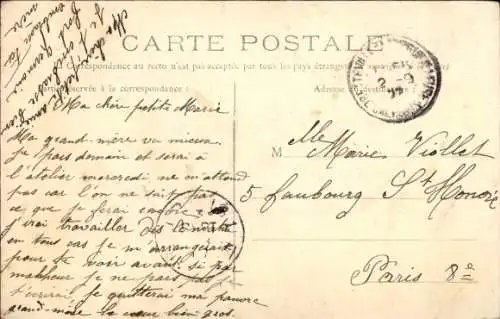 CARTE POSTALE
La Correspondance au recto n'est pas acceptée par tous les pays étrangers
Partie réservée à la correspondance
Adresse
Ma chère petite Marie
Ma grand-mère va mieux
Je pars demain et serai à
l'atelier mercredi ne m'attend
pas car l'on ne sait pas
ce que je ferai encore si
j'irai travailler dès le matin
en tous cas je m'arrangerait
pour te voir avant, si par
malheur je ne pars pas je
t'écrirai je quitterai ma pauvre
grand-mère le cœur bien gros.
Melle Marie Viollet
M
5 faubourg St Honoré
Paris 8e